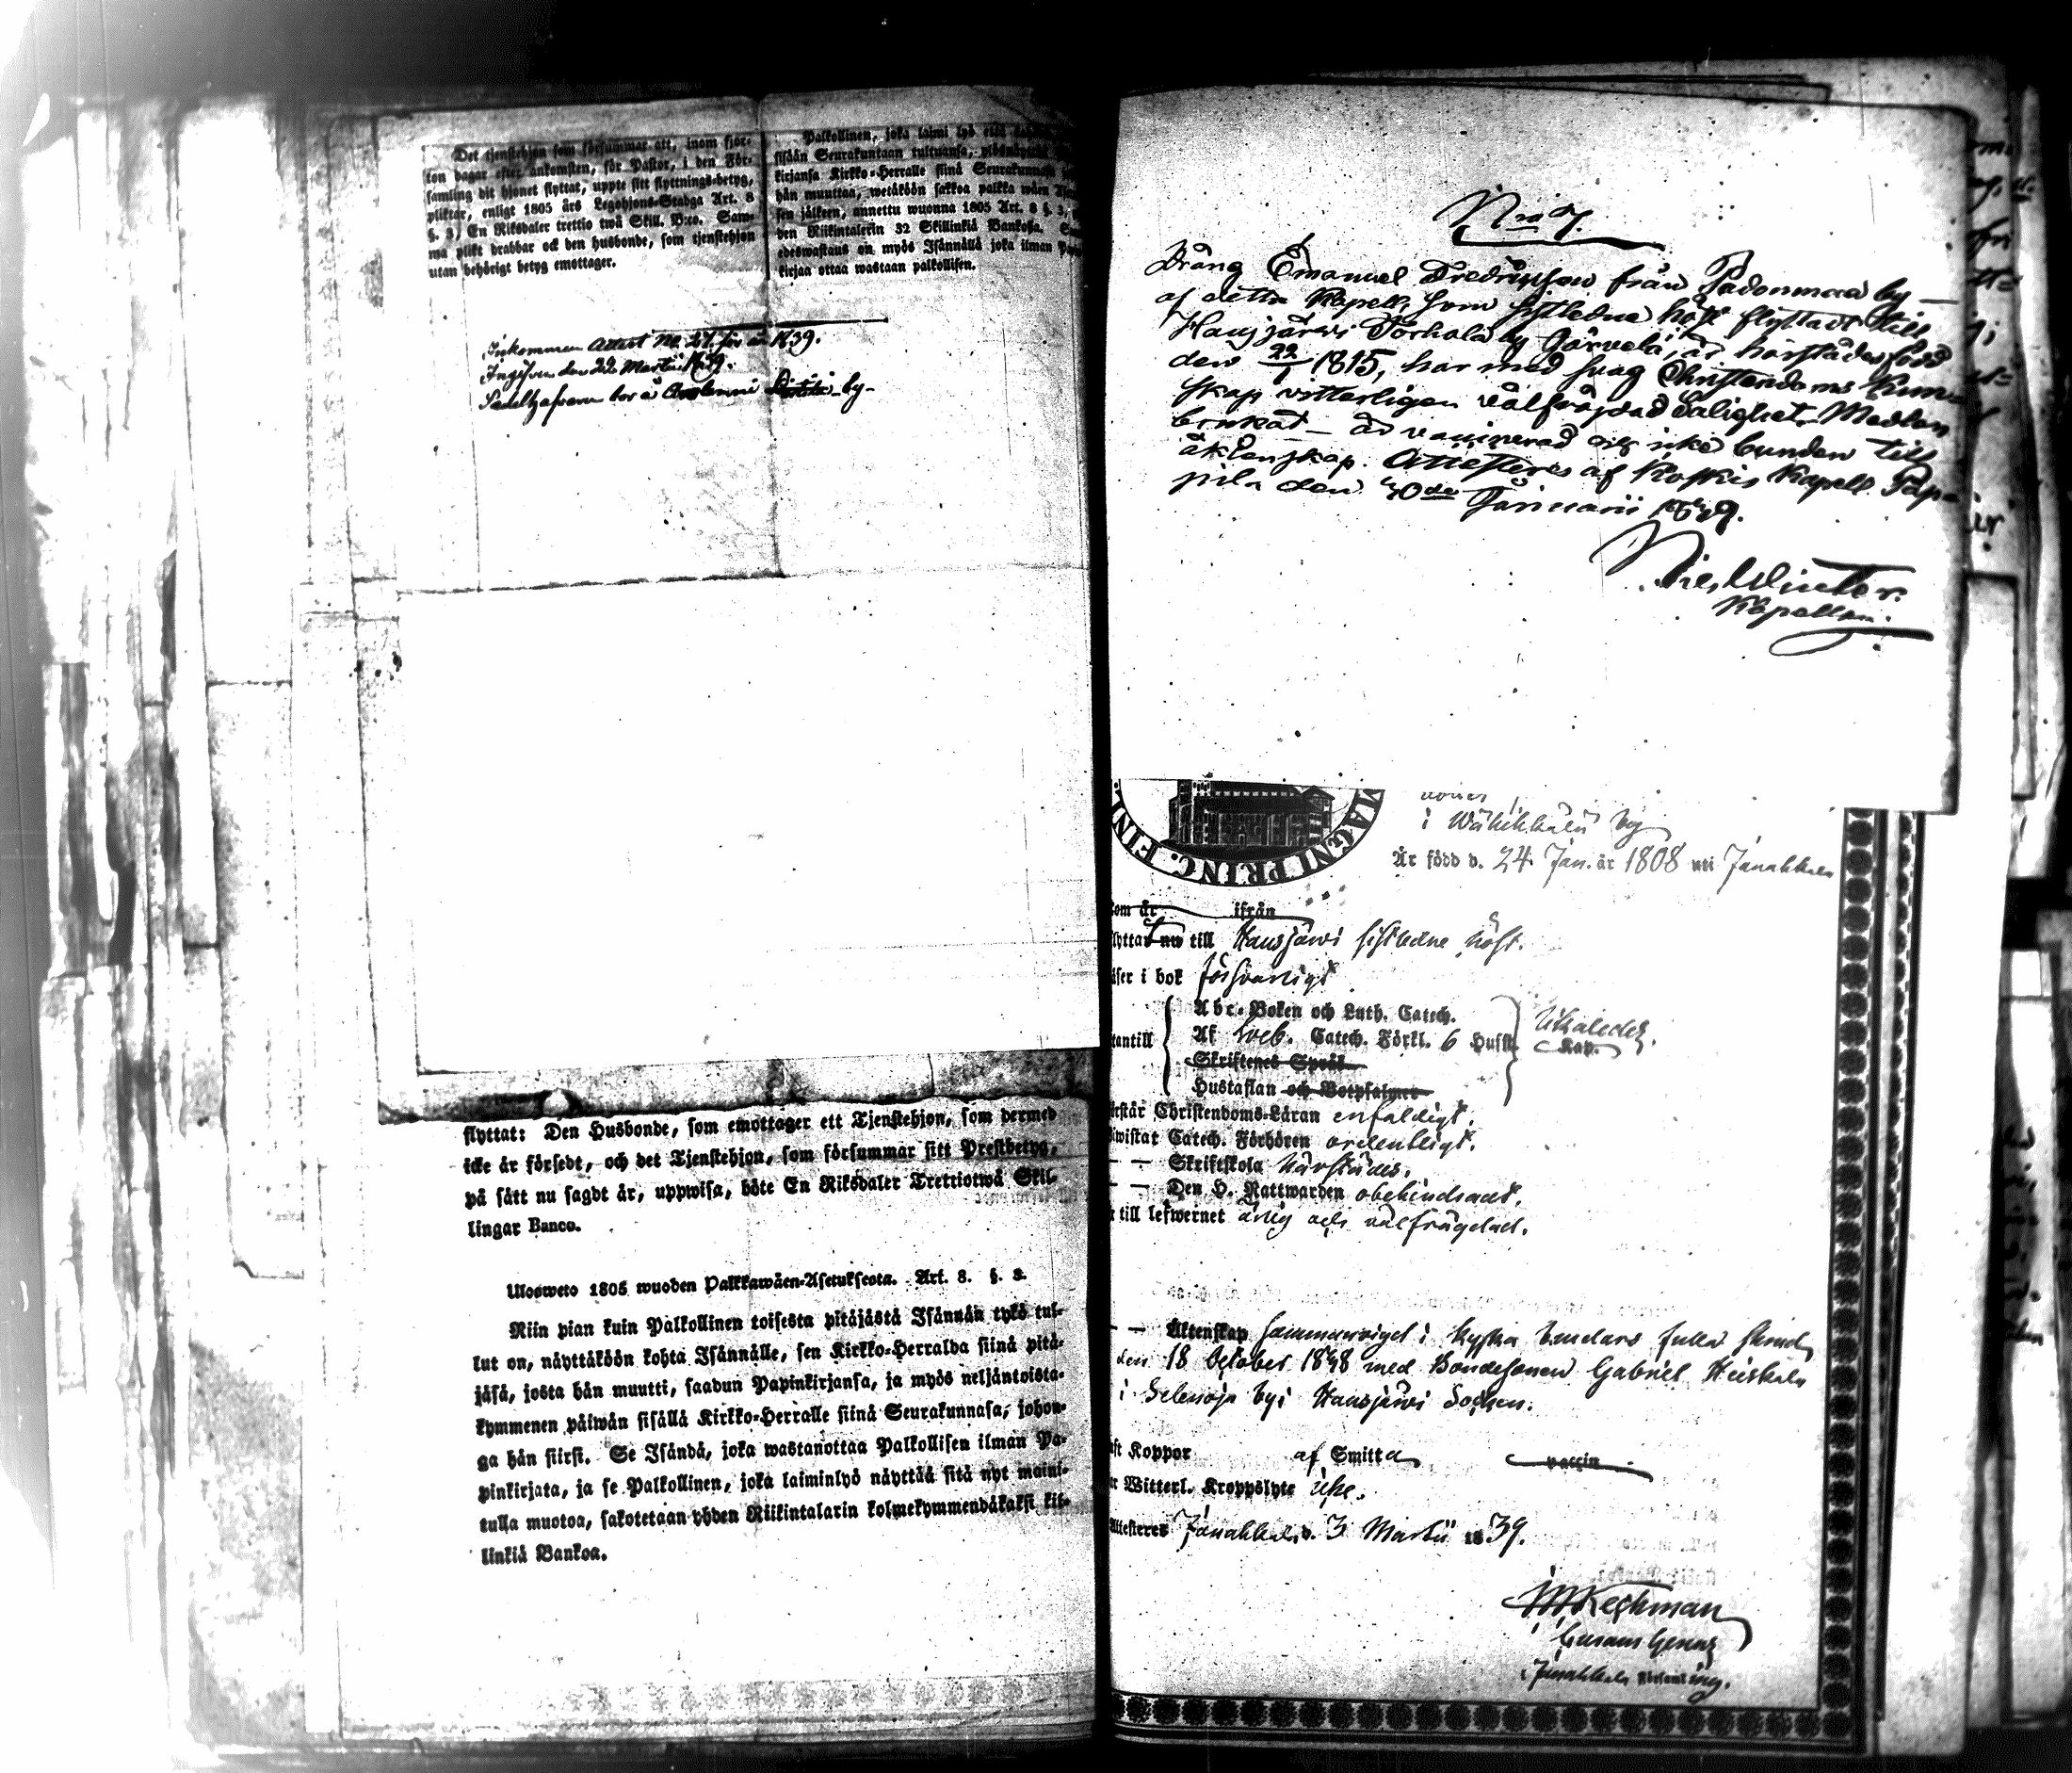 Det tjenstehjon som försummar att, inom fjor-
ton dagar efter ankomsten, för Pastor, i den För-
samling dit hjonet flyttat, uppte sitt flyttnings-betyg,
pliktar, enligt 1805 års Legohjons-Stadga Art. 8
§. 3, En Riksdaler trettio twå Skill. B:co. Sam-
ma plikt drabbar ock den husbonde, som tjenstehjon
utan behörigt betyg emottager.
Palkollinen, joka laimi lyö että
sisään Seurakuntaan tultuansa,
kirjansa Kirkko-Herralle siinä Seurakunnasa
hän muuttaa, wetäköön sakkoa palkka wäen
sen jälkeen, annettu wuonna 1805 Art. 8 §. 3,
den Riikintalerin 32 Skillinkiä Bankosa.
edeswastaus on myös Isännällä joka ilman
kirjaa ottaa wastaan palkollisen.
Inkommen Attest No 27. för år 1839.
Ingifven den 22 Martii 1839.
by
flyttat: Den Husbonde, som emottager ett Tjenstehjon, som dermed
icke är försedt, och det Tjenstehjon, som försummar sitt Prestbetyg,
på sätt nu sagdt är, uppwisa, böte En Riksdaler Trettiotwå Skil-
lingar Banco.
Ulosweto 1805 wuoden Palkkawäen-Asetuksesta. Art. 8. §. 3.
Niin pian kuin Palkollinen toisesta pitäjästä Isännän tykö tul-
lut on, näyttäköön kohta Isännälle, sen Kirkko-Herralda siinä pitä-
jäsä, josta hän muutti, saadun Papinkirjansa, ja myös neljäntoista-
kymmenen päiwän sisällä Kirkko-Herralle siinä Seurakunnasa, johon-
ga hän siirsi. Se Isändä, joka wastanottaa Palkollisen ilman Pa-
pinkirjata, ja se Palkollinen, joka laiminlyö näyttää sitä nyt maini-
tulla muotoa, sakotetaan yhden Riikintalarin kolmekymmendäkaksi kil-
linkiä Bankoa.
Dräng Emanuel Fredriksson från Padonmaa by
af detta Kapell, som sistledne höst flyttadt till
Hausjärvi Torhola by Järvelä, är härstädes född
den 22/1 1815, har med svag Christendoms Kun-
skap vitterligen välfrägdad Salighets Medlen
brukat är vaccinerad och icke bunden till
äktenskap. Attesteras af Koskis Kapell Pap-
pila den 30de Januarii 1839.
Kapellan.
MAGNI PRINC. FIN
i Wähikkälä by
Är född d. 24 Jan. år 1808 uti Janakkala
som är ifrån
flyttat nu till Hausjärvi sistledne höst.
läser i bok försvarligt
Abc-Boken och Luth. Catech.
utantill Af Sveb. Catech. Förkl. 6 Hufst. Kap.
Skriftenes Språk
Hustaflan och Botpsalmer
förstår Christendoms-Läran enfaldigt.
bewistat Catech. Förhören ordentligt.
— — Skriftskola härstädes.
— — Den H. Nattwarden obehindradt.
är till lefwernet ärlig och välfrägdad.
— — Äktenskap sammanvigd i kyrka
den 18 October 1838 med Bondesonen Gabriel Heiskala
i Selenoja by i Hausjärvi Socken.
haft Koppor af Smitta vaccin
Witterl. Kroppslyte icke.
Attesteres Janakkala d. 3 Martii 1839.
i Janakkala Församling.